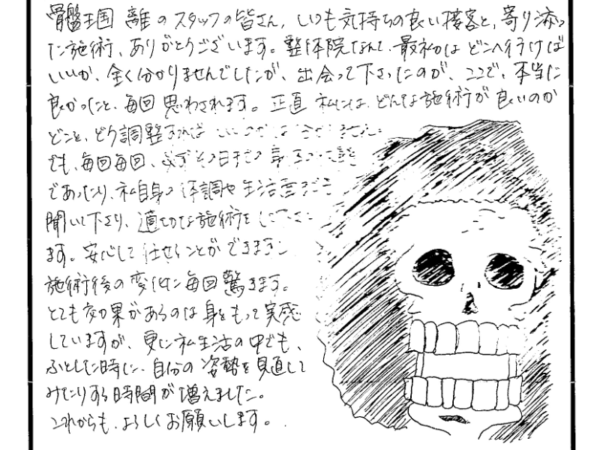 骨盤王国 離のスタッフの皆さん、いつも気持ちの良い接客と、寄り添っ
た施術、ありがとうございます。整体院なんて、最初は どこへ行けば
いいか、全く分かりませんでしたが、出会って下さったのが、ここで、本当に
良かったと、毎回 思わされます。正直 私には、どんな施術が良いのか
どこを、どう調整すれば
でも、毎回毎回、必ずその日までの
であったり、私自身の体調や生活面まで
聞いて下さり、適切な施術を
ます。安心して任せることができますし
施術後の変化に毎回驚きます。
とても効果があるのは身をもって実感
していますが、更に私生活の中でも、
ふとした時に、自分の姿勢を見直して
みたりする時間が増えました。
これからも、よろしくお願いします。